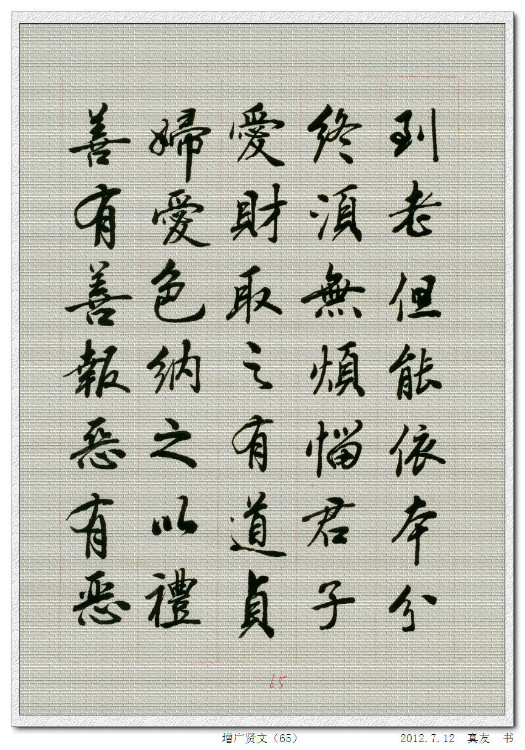 到老但能依本分
終須無煩惱君子
愛財取之有道貞
婦愛色納之以禮
善有善報惡有惡
65
增广贤文（65）
2012.7.12 真友 书